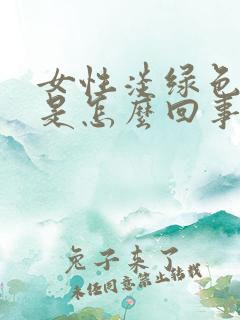 女性淡绿色
是怎麽回事
兔子来了
未经同意禁止转载